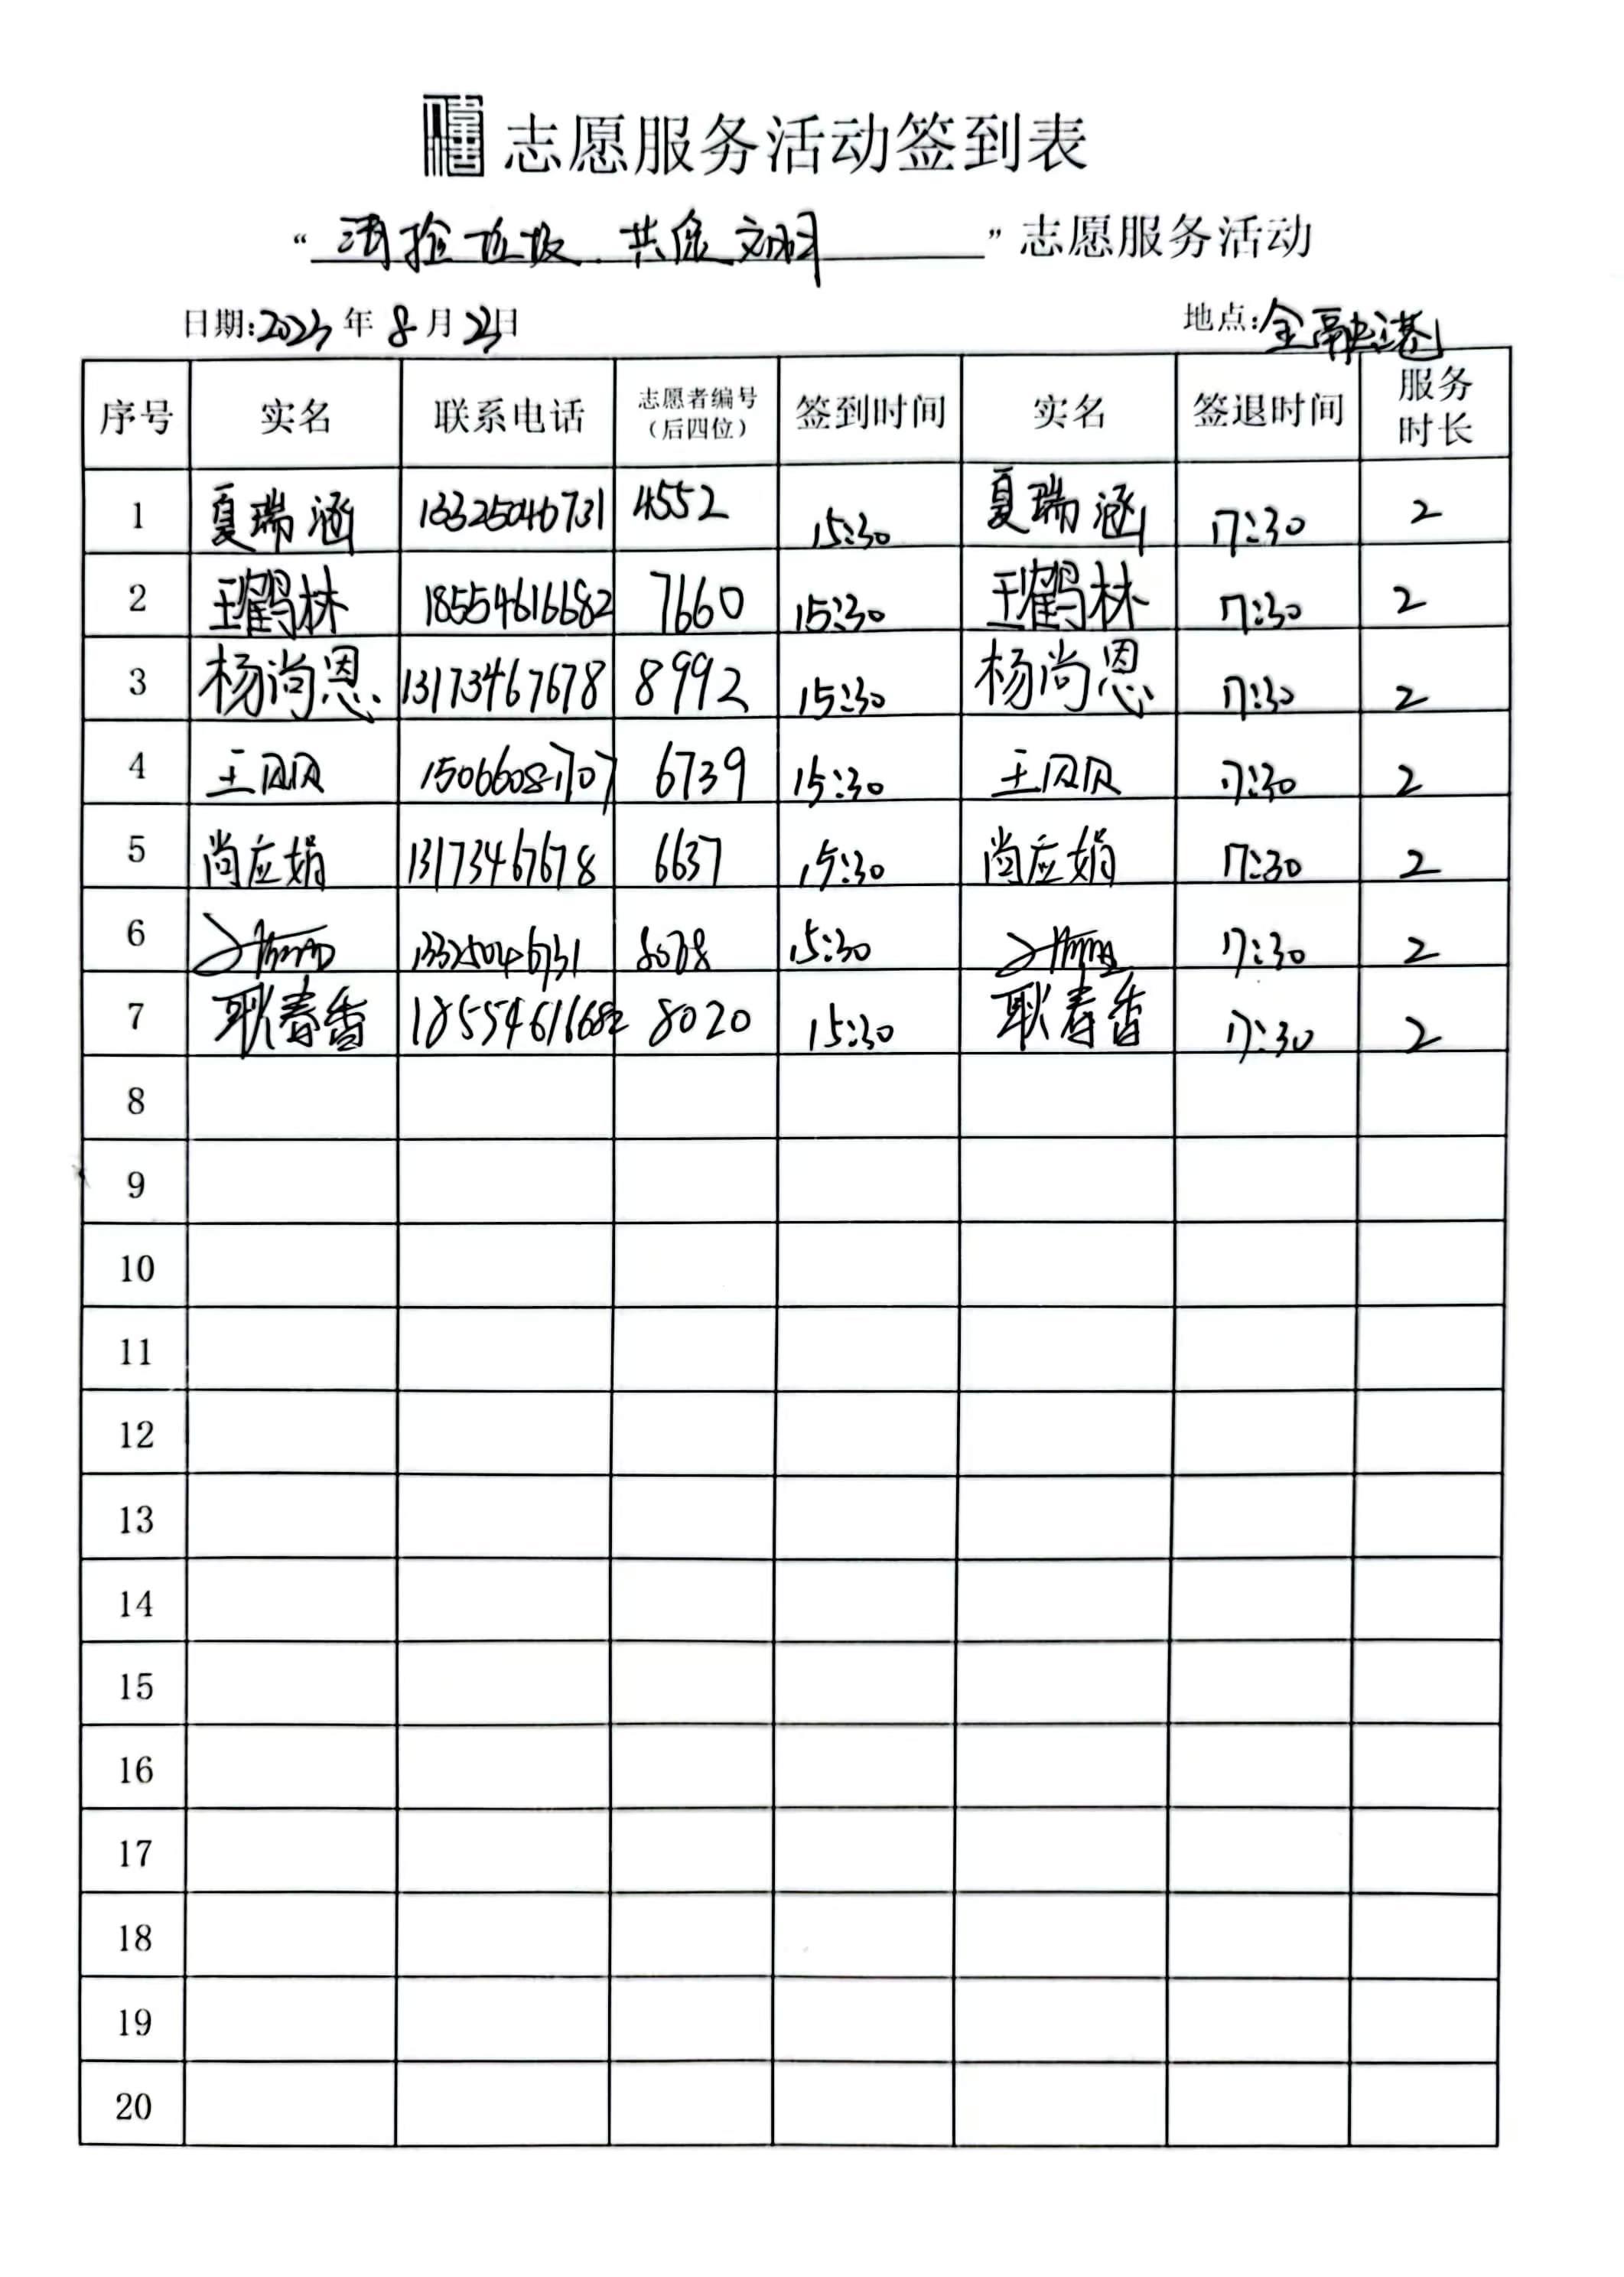 志愿服务活动签到表
“清捡垃圾 共促文明”志愿服务活动
日期:2023年8月23日 地点:金融港
序号 实名 联系电话 志愿者编号（后四位） 签到时间 实名 签退时间 服务时长
1 夏瑞涵 13325046731 4552 15:30 夏瑞涵 17:30 2
2 王鹤林 18554616682 7660 15:30 王鹤林 17:30 2
3 杨尚恩 13173467678 8992 15:30 杨尚恩 17:30 2
4 王贝贝 15066081707 6739 15:30 王贝贝 17:30 2
5 尚应娟 13173467678 6637 15:30 尚应娟 17:30 2
6 13325046731 15:30 17:30 2
7 耿春香 18554616682 8020 15:30 耿春香 17:30 2
8
9
10
11
12
13
14
15
16
17
18
19
20